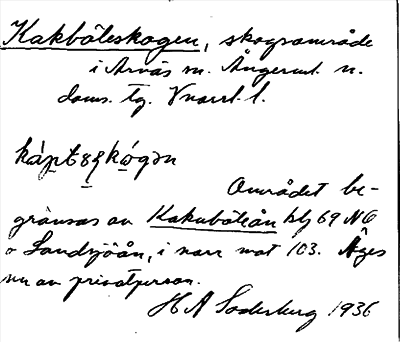 Kakböleskogen, skogsområde
i Arnäs sn. Ångerml. n.
doms. tg. Vnorrl. l.
Området be-
gränsas av Kakuböleån blg 69 NO
o Sandsjöån, i norr mot 103. Äges
nu av privatperson.
H A Söderberg 1936